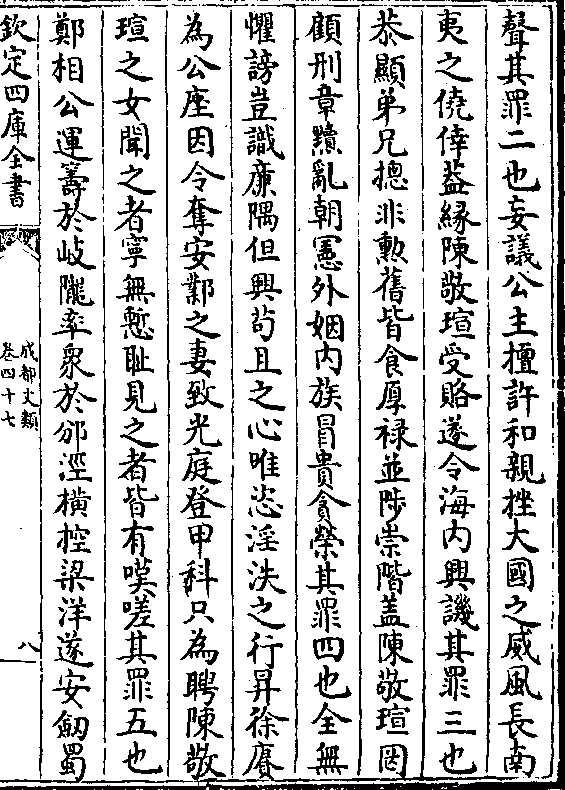 聲其罪二也妄議公主擅許和親挫大國之威風長南
夷之僥倖葢縁陳敬瑄受賂遂令海内興譏其罪三也
恭顯弟兄摠非勲舊皆食厚禄並陟崇階盖陳敬瑄罔
顧刑章黷亂朝憲外姻内族冒貴貪榮其罪四也全無
懼謗豈識廉隅但興茍且之心唯恣淫泆之行昇徐賡
為公座因令奪安鄴之妻致光庭登甲科只為聘陳敬
瑄之女聞之者寧無慙耻見之者皆有嘆嗟其罪五也
鄭相公運籌於岐隴率衆於邠涇横控梁洋遂安劒蜀
欽定四庫全書
成都文類
卷四十七
八